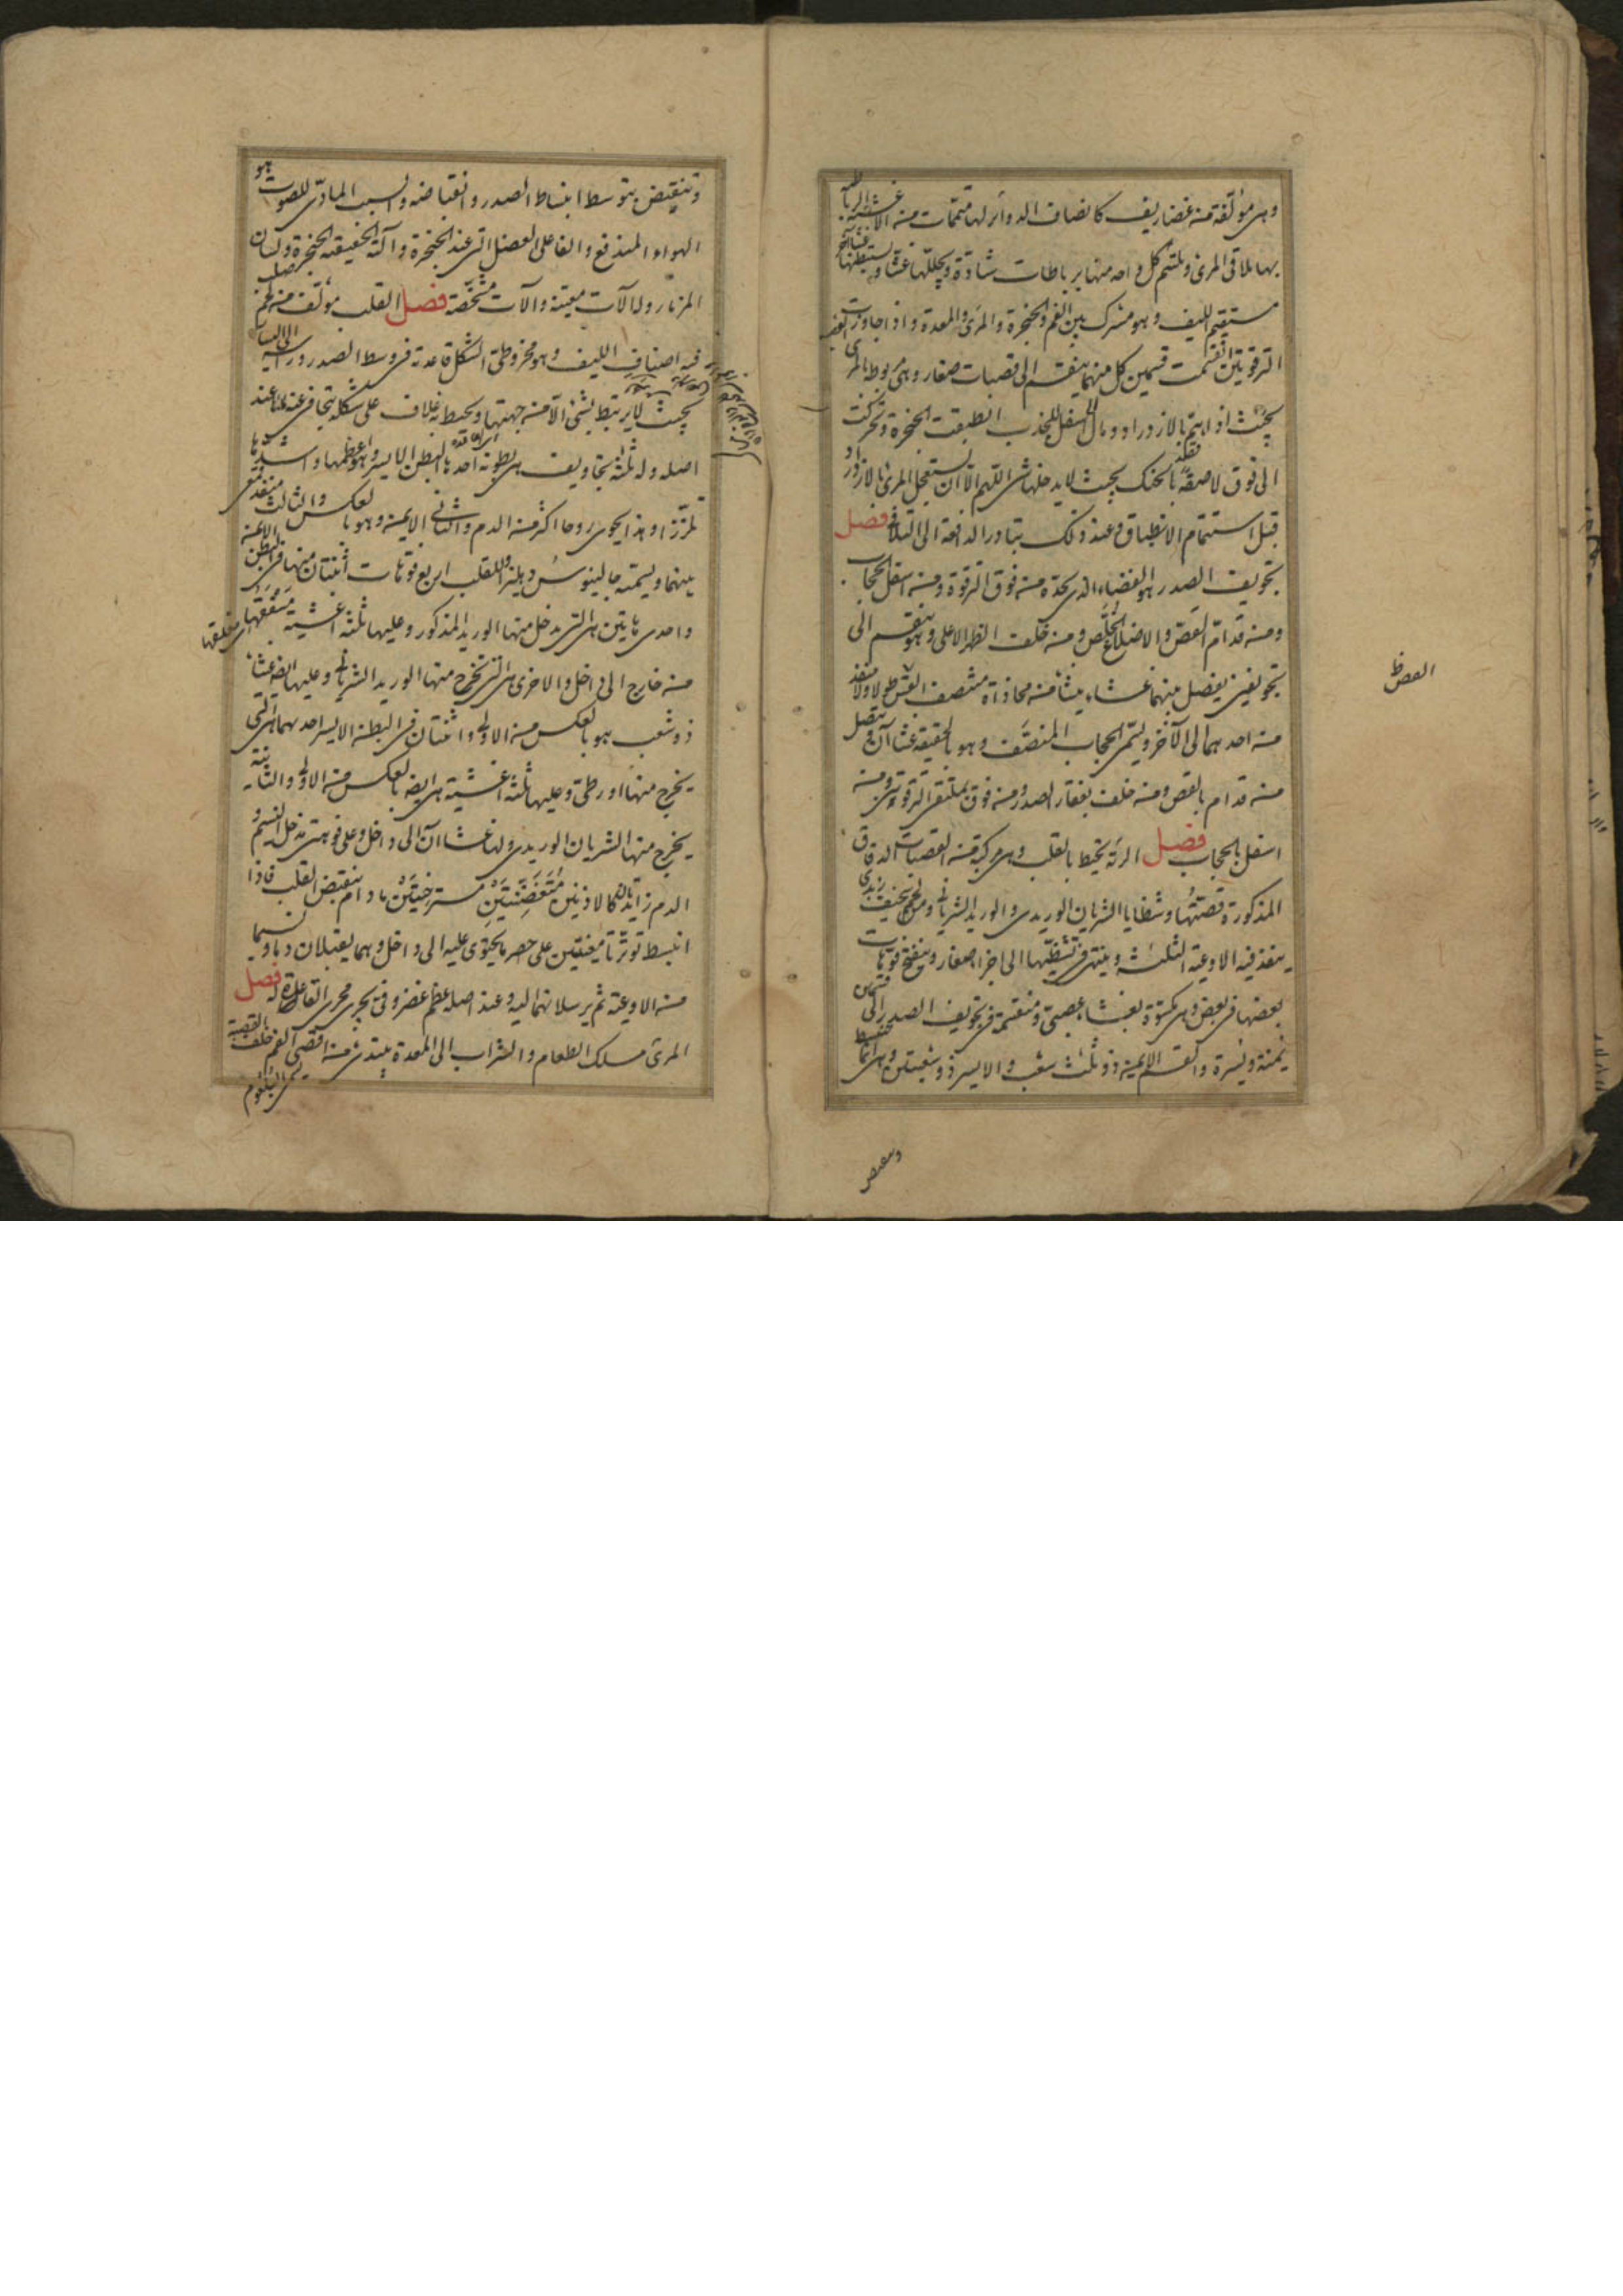 وهي مؤلفة من غضاريف كانصاف الدوائر لها متممات من الاغشية
بها يلاقي المرئ ويلتئم كل واحد منها برباطات شادة ويجللها غشاء ويستبطنها
مستقيم الليف وهو مشترك بين الفم والحنجرة والمرئ والمعدة واذا جاوزت
الترقوتين انقسمت قسمين كل منهما ينقسم الى قصبات صغار وهي مربوطة بالمرئ
بحيث اذا اهتم بالازدراد ومال الى اسفل للجذب انطبقت الحنجرة وتحركت
الى فوق لاصقة بالحنك بحيث لا يدخلها شئ اللهم الا ان يستعجل المرئ بالازدراد
قبل استتمام الانطباق وعند ذلك يتبادر الدافعة الى التلافي فصل
تجويف الصدر هو الفضاء الذي يحده من فوق الترقوة ومن اسفل الحجاب
ومن قدام القص والاضلاع الخلص ومن خلف الظهر الاعلى وهو ينقسم الى
تجويفين يفصل بينهما غشاء ينشأ من محاذاة منتصف القس طولا ولا منفذ
من احدهما الى الآخر ويسمى الحجاب المنصف وهو بالحقيقة غشاآن ويتصل
من قدام بالقص ومن خلف بفقار الصدر ومن فوق بملتقى الترقوتين ومن
اسفل بالحجاب فصل الرئة يحيط بالقلب وهي مركبة من القصبات الدقاق
المذكورة قصتها وشظايا الشريان الوريدي والوريد الشرياني ومن لحم سخيف
ينفذ فيه الاوعية الثلثة وينتهي في تشظيها الى اجزاء صغار وينفتح فوهات
بعضها في بعض وهي مكسوة بغشاء عصبي ومنقسمة في تجويف الصدر الى قسمين
يمنة ويسرة والقسم الايمن ذو ثلث شعب والايسر ذو شعبتين وهي انما تنبسط
القص ظ
وتنقبض بتوسط انبساط الصدر وانقباضه والسبب المادي للصوت هو
الهواء المندفع والفاعل العضل التي عند الحنجرة وآلته الحقيقية الحنجرة ولسان
المزمار وله الآت معينة والآت مشخصة فصل القلب مؤلف من لحم صلب
فيه اصناف الليف وهو مخروطي الشكل قاعدته في وسط الصدر وراسه الى اليسار
بحيث لا يرتبط بشئ الا من جهتها ويحيط به غلاف على شكله يتجافى عنه عند
اصله وله ثلثة تجاويف هي بطونه احدها البطن الايسر وهو اعظمها واشدها
تلززا وهذا يحوي روحا اكثر من الدم والثاني الايمن وهو بالعكس والثالث منفذ
بينهما ويسميه جالينوس دهليزا وللقلب اربع فوهات اثنتان منها في البطن الايمن
واحدى هاتين هي التي يدخل منها الوريد المذكور وعليها ثلثة اغشية مسقفها
من خارج الى داخل والاخرى هي التي تخرج منها الوريد الشرياني وعليها ايضا غشاء
ذو شعب هو بالعكس من الاولى واثنتان في البطن الايسر احدهما هي التي
يخرج منها اورطي وعليها ثلثة اغشية هي ايضا بالعكس من الاولى والثانية
يخرج منها الشريان الوريدي ولها غشاآن الى داخل وعلى فوهتي مدخل النسيم و
الدم زايدتان كالاذنين متغضنتين مسترخيتين مادام ينقبض القلب فاذا
انبسط توترتا معينتين على حصر ما يحتوي عليه الى داخل وهما يقبلان دما ونسيما
من الاوعية ثم يرسلانهما اليه وعند اصله عظم غضروفي يجري مجرى القاعدة له فصل
المرئ مسلك الطعام والشراب الى المعدة يبتدئ من اقصى الفم خلف القصبة